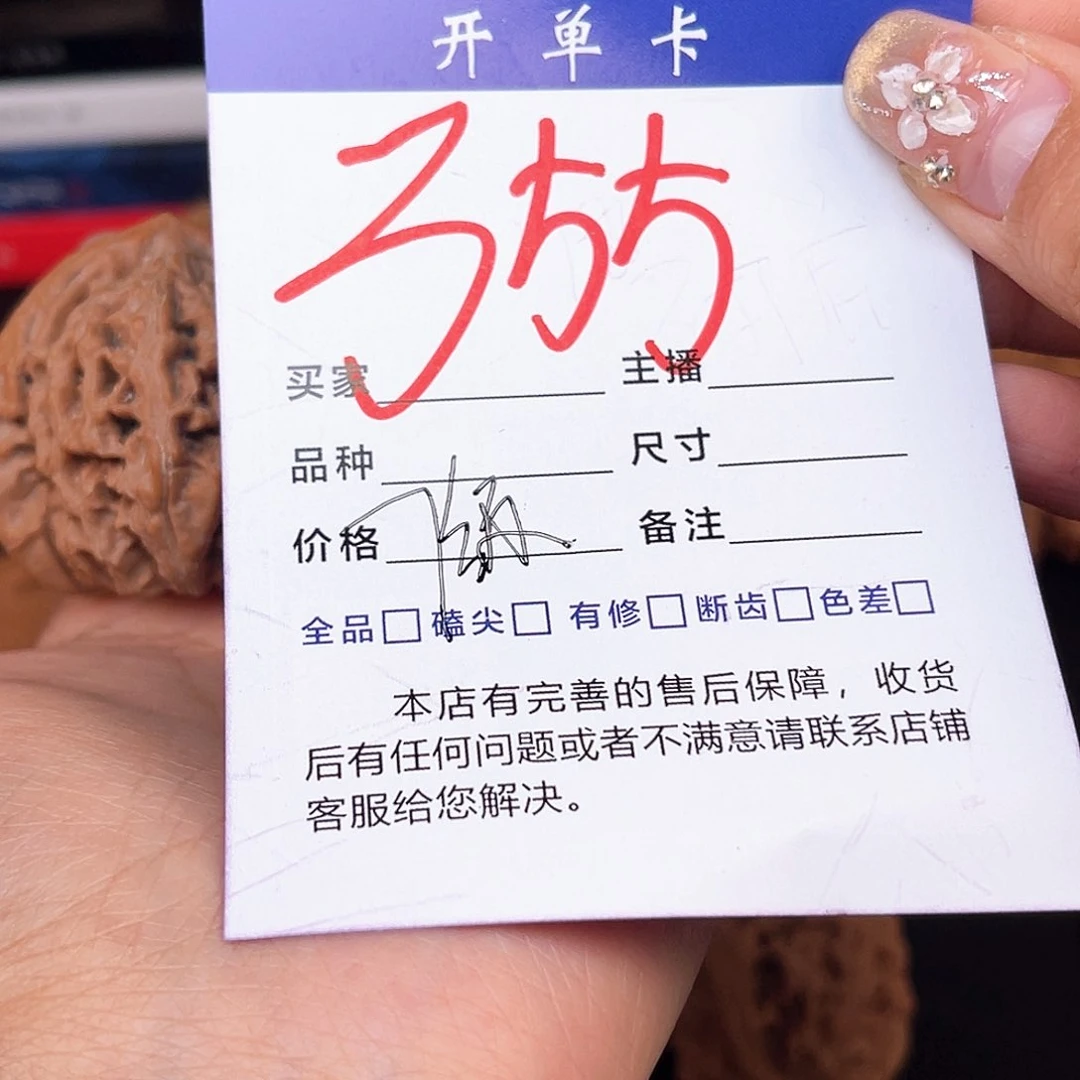 开单卡
355
买家 主播
品种 尺寸
价格 备注
全品□ 磕尖□ 有修□ 断齿□ 色差□
本店有完善的售后保障，收货
后有任何问题或者不满意请联系店铺
客服给您解决。